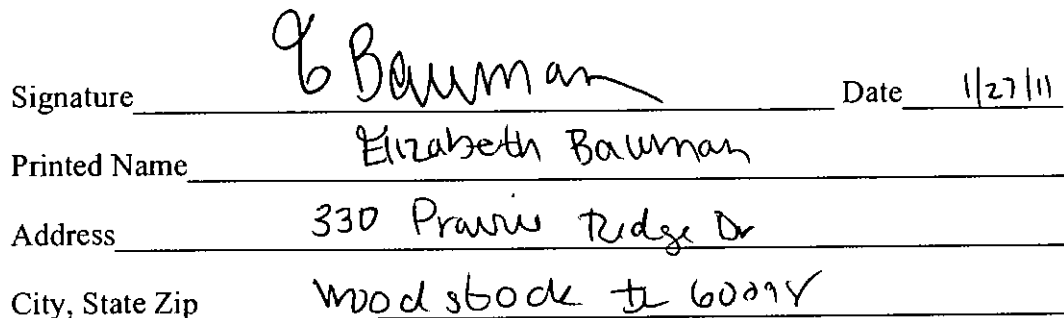 Signature E Bauman Date 1/27/11
Printed Name Elizabeth Bauman
Address 330 Prairie Ridge Dr
City, State Zip Woodstock IL 60098